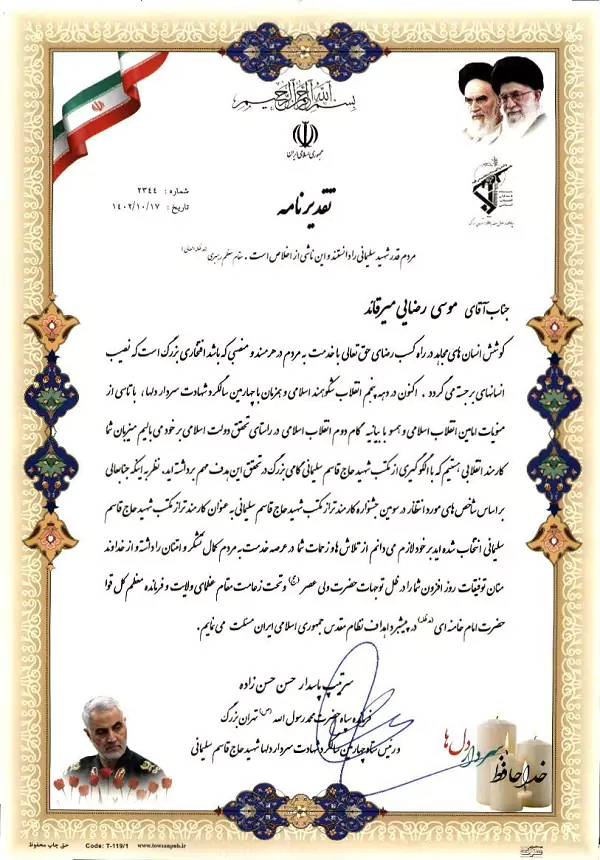 بسم الله الرحمن الرحیم
جمهوری اسلامی ایران
شماره : ۲۳۴۴
تاریخ : ۱۴۰۲/۱۰/۱۷
تقدیرنامه
مردم قدر شهید سلیمانی را دانستند و این ناشی از اخلاص است . مقام معظم رهبری (مدظله العالی)
جناب آقای موسی رضایی میرقائد
کوشش انسان های مجاهد در راه کسب رضای حق تعالی با خدمت به مردم در هر مسند و منصبی که باشد افتخاری بزرگ است که نصیب
انسانهای برجسته می گردد . اکنون در دهه پنجم انقلاب شکوهمند اسلامی و همزمان با چهارمین سالگرد شهادت سردار دلها ، با تاسی از
منویات امامین انقلاب اسلامی و همسو با بیانیه گام دوم انقلاب اسلامی در راستای تحقق دولت اسلامی بر خود می بالیم میزبان شما
کارمند انقلابی هستیم که با الگوگیری از مکتب شهید حاج قاسم سلیمانی گامی بزرگ در تحقق این هدف مهم برداشته اید. نظر به اینکه جنابعالی
بر اساس شاخص های مورد انتظار در سومین جشنواره کارمند تراز مکتب شهید حاج قاسم سلیمانی به عنوان کارمند تراز مکتب شهید حاج قاسم
سلیمانی انتخاب شده اید بر خود لازم می دانم از تلاش ها و زحمات شما در عرصه خدمت به مردم کمال تشکر و امتنان را داشته و از خداوند
منان توفیقات روز افزون شما را در ظل توجهات حضرت ولی عصر (عج) و تحت زعامت مقام عظمای ولایت و فرمانده معظم کل قوا
حضرت امام خامنه ای (مدظله) در پیشبرد اهداف نظام مقدس جمهوری اسلامی ایران مسئلت می نمایم .
سرتیپ پاسدار حسن حسن زاده
فرمانده سپاه حضرت محمد رسول الله (ص) تهران بزرگ
و رئیس ستاد چهارمین سالگرد شهادت سردار دلها شهید حاج قاسم سلیمانی
خداحافظ سردار دل ها
حق چاپ محفوظ Code: T-119/1 www.towsanpub.ir